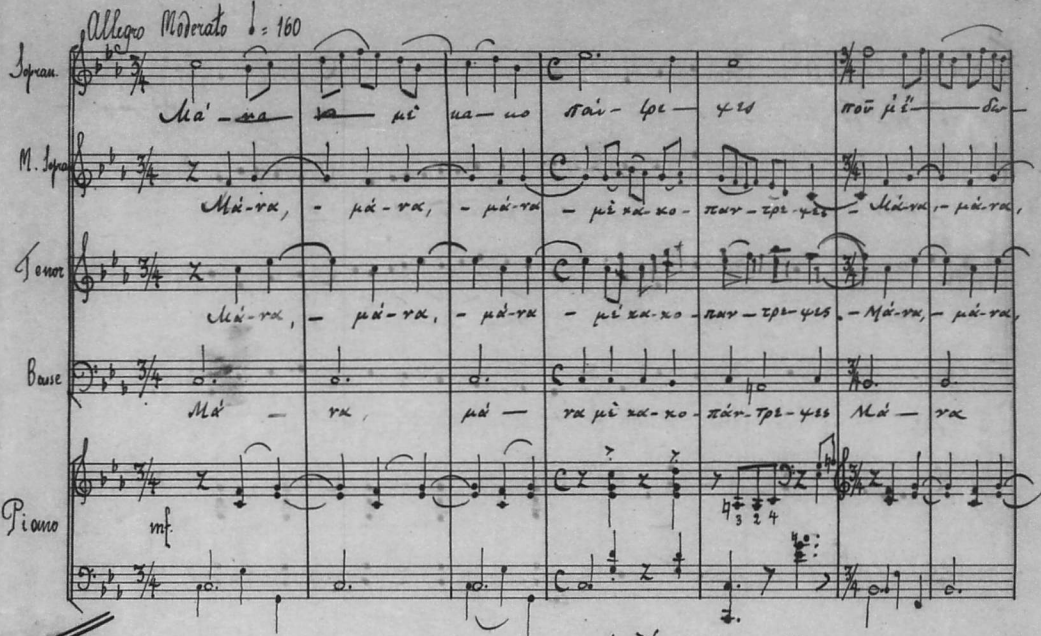 Allegro Moderato ♩= 160
Sopran.
Μά-να μὲ κα-κο πάν-τρε-ψες ποῦ μὲ
M. Sopra
Μά-να, - μά-να, - μά-να - μὲ κα-κο-παν-τρε-ψες - Μά-να, - μά-να,
Tenor
Μά-να, - μά-να, - μά-να - μὲ κα-κο-παν-τρε-ψες - Μά-να, - μά-να,
Basse
Μά - να, μά - να μὲ κα-κο-πάν-τρε-ψες Μά - να
Piano
mf.
3 2 4